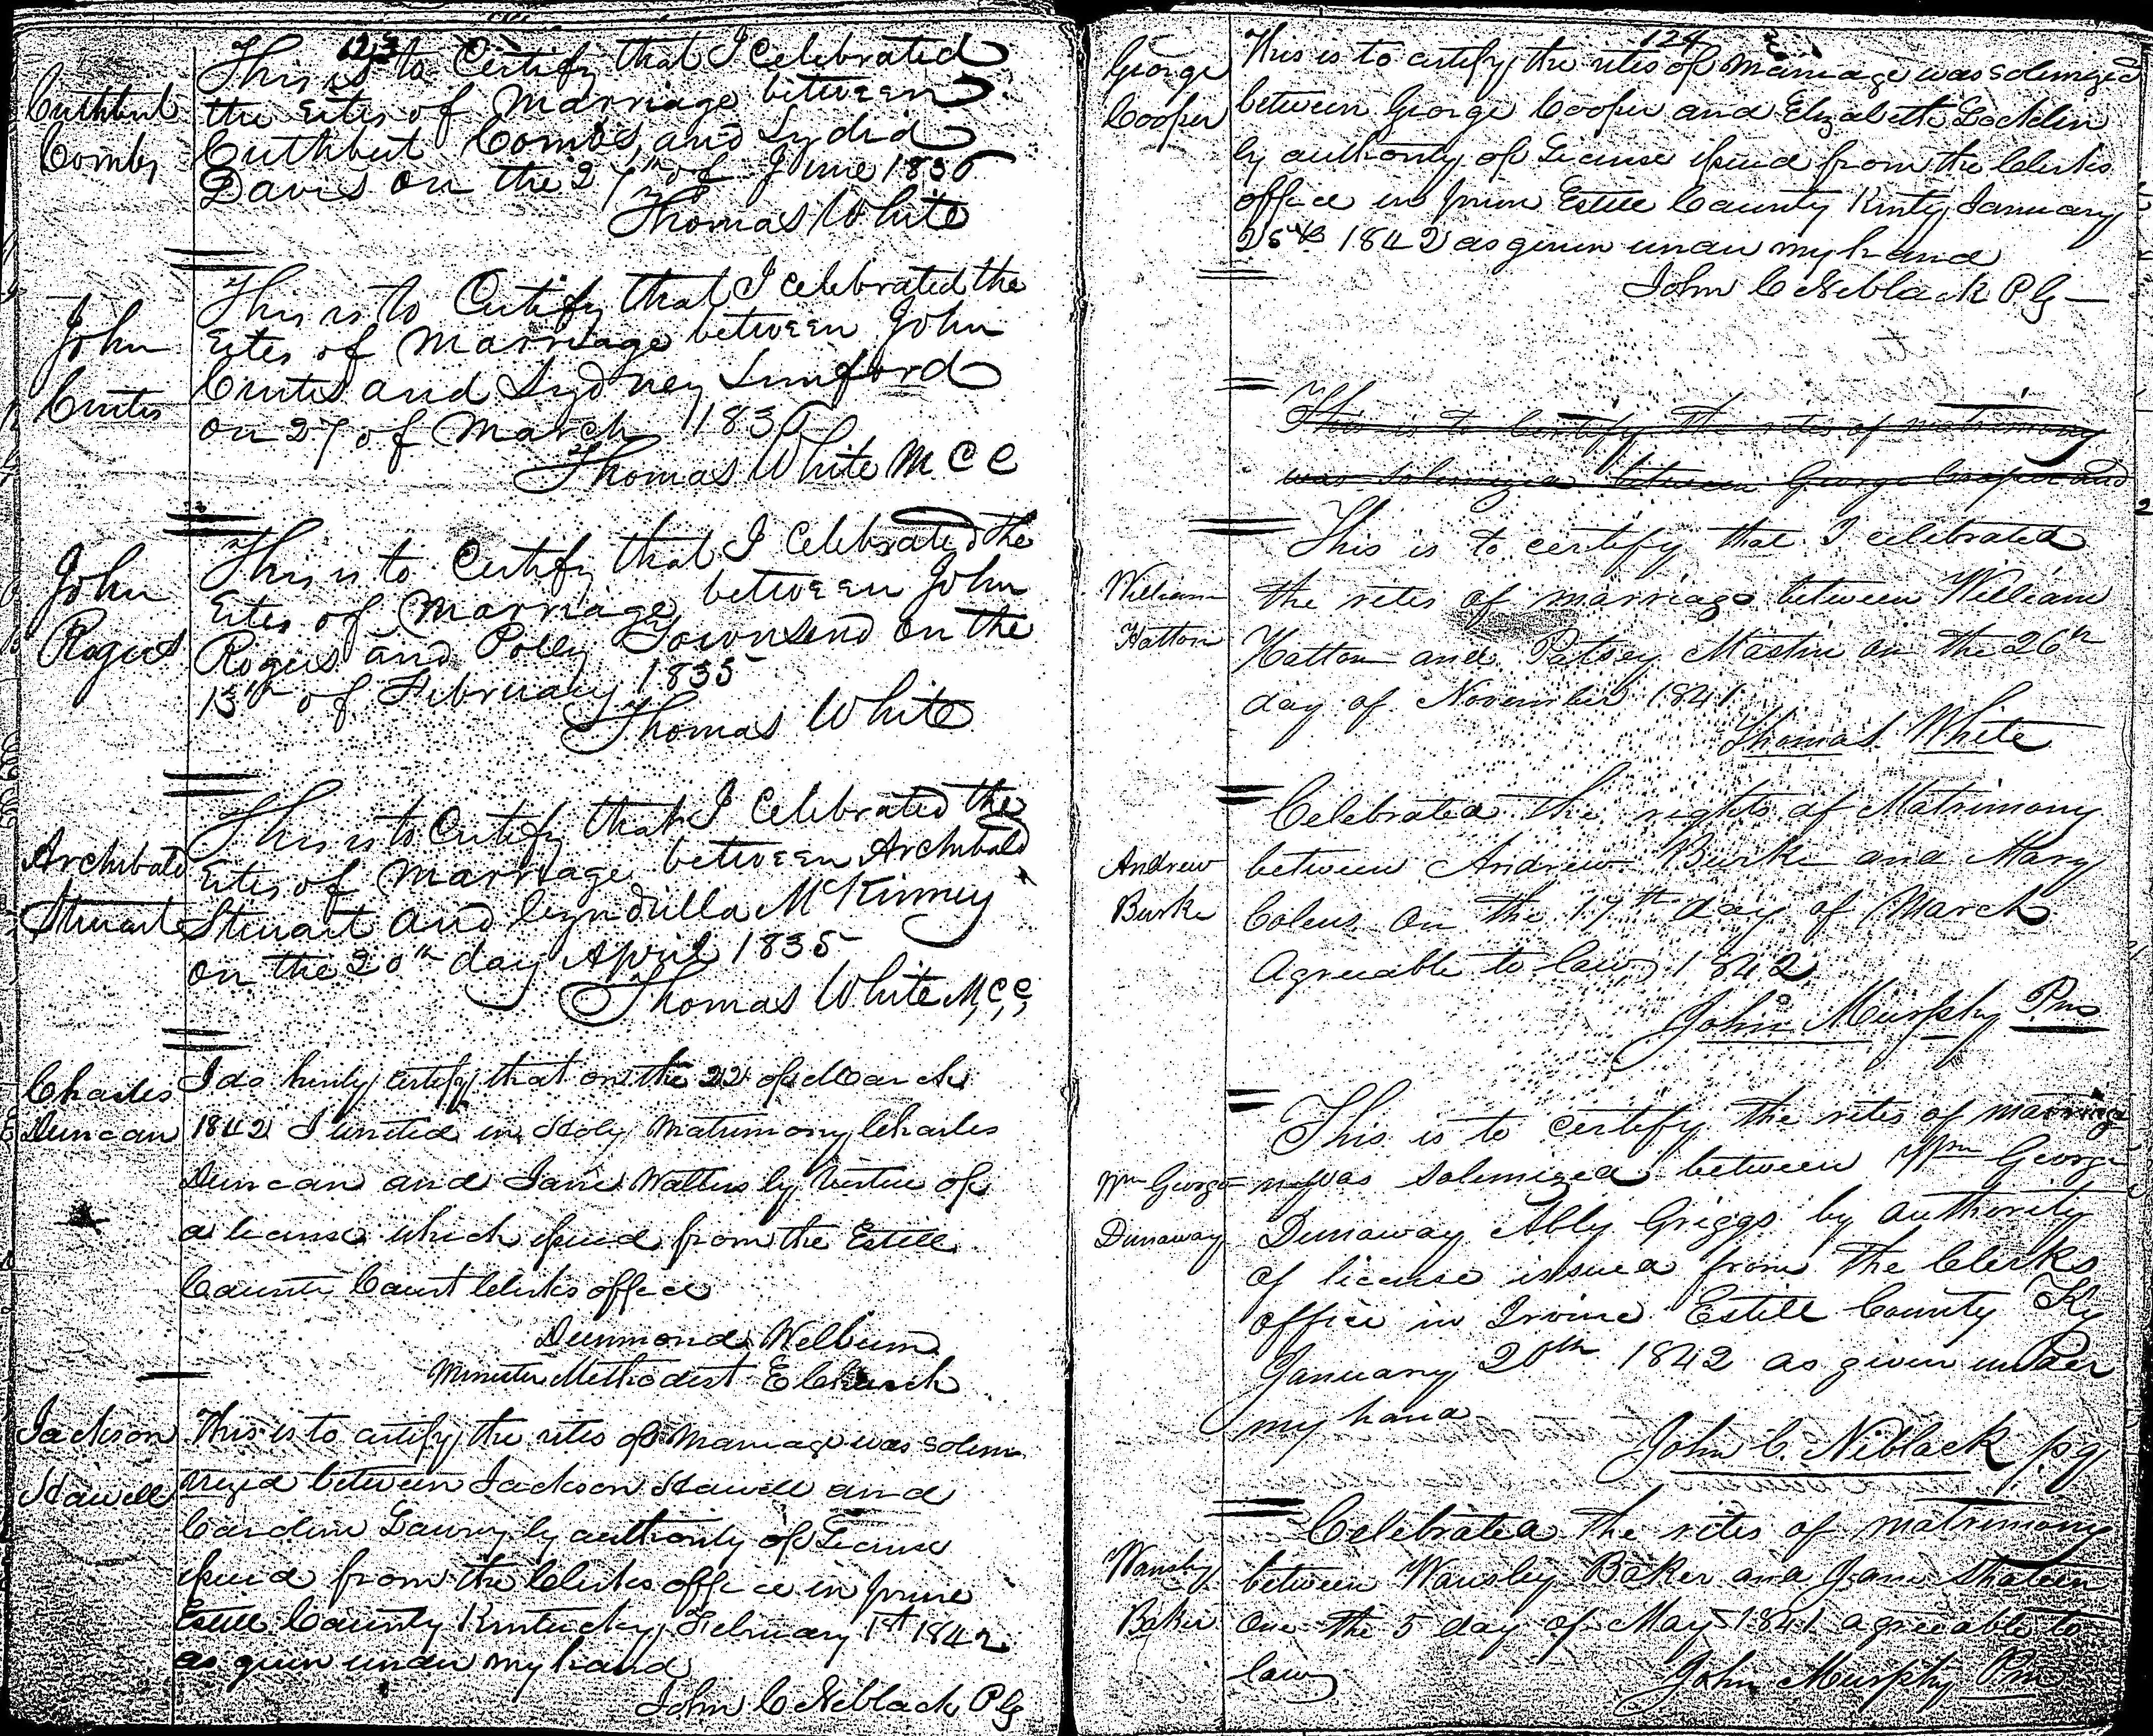 123
Cuthbert
Combs
This is to Certify that I Celebrated
the rites of Marriage between
Cuthbert Combs, and Lydia
Davis on the 27th of June 1836
Thomas White
John
Curtis
This is to Certify that I celebrated the
rites of Marriage between John
Curtis and Sydney
on 27 of March 183
Thomas White M C C
John
Rogers
This is to Certify that I Celebrated the
rites of Marriage between John
Rogers and Polly Townsend on the
13th of February 1835
Thomas White
Archibald
Stuart
This is to Certify that I Celebrated the
rites of Marriage between Archibald
Stuart and McKinney
on the 20th day April 1835
Thomas White M,C,C,
Charles
Duncan
I do hereby certify that on the 22 of March
1842 I united in Holy Matrimony Charles
Duncan and Jane Walters by Virtue of
a license which issued from the Estill
County Court Clerks office
Welburn
Minister Methodist E Church
Jackson
Howell
This is to certify the rites of Marriage was solem
nized between Jackson Howell and
Caroline by authority of License
issued from the Clerks office in Irvine
Estill County Kentucky February 1st 1842
as given under my hand
John C Niblack P G
124
George
Cooper
This is to certify the rites of Marriage was solemized
between George Cooper and Elizabeth Locklin
by authority of License issued from the Clerks
office in Irvine Estill County Kenty January
25th 1842 as given under my hand
John C Niblack P G
This is to Certify the rites of matrimony
was Solemnized between George and
William
Hatton
This is to certify that I celebrated
the rites of marriage between William
Hatton and Patsey Mastin on the 26th
day of November 1841
Thomas White
Andrew
Burke
Celebrated the rights of Matrimony
between Andrew Burke and Mary
on the 17th day of March
Agreeable to law 1842
John Murphy
Wm George
Dunaway
This is to certify the rites of marriage
was Solemized between Wm George
Dunaway Ably Griggs by authority
of license issued from the Clerks
office in Irvine Estill County Ky
January 20th 1842 as given under
my hand
John C. Niblack p.g
Wansley
Baker
Celebrated the rites of matrimony
between Wansley Baker and Jane
One the 5 day of May 1841 agreeable to
law
John Murphy